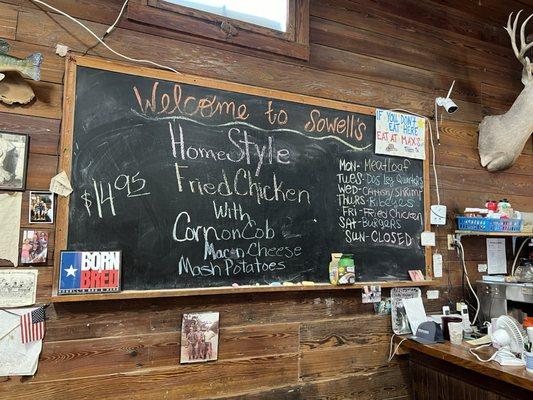 Welcome to Sowell's
HomeStyle
Fried Chicken
$14.95
With
Corn on Cob
Mac n Cheese
Mash Potatoes
IF YOU DON'T
EAT HERE
EAT AT MAX'S
MON- MEATLOAF
TUES-
WED- Catfish/Shrimp
THURS- Ribeyes
FRI- Fried Chicken
SAT- Burgers
SUN- CLOSED
BORN
BRED